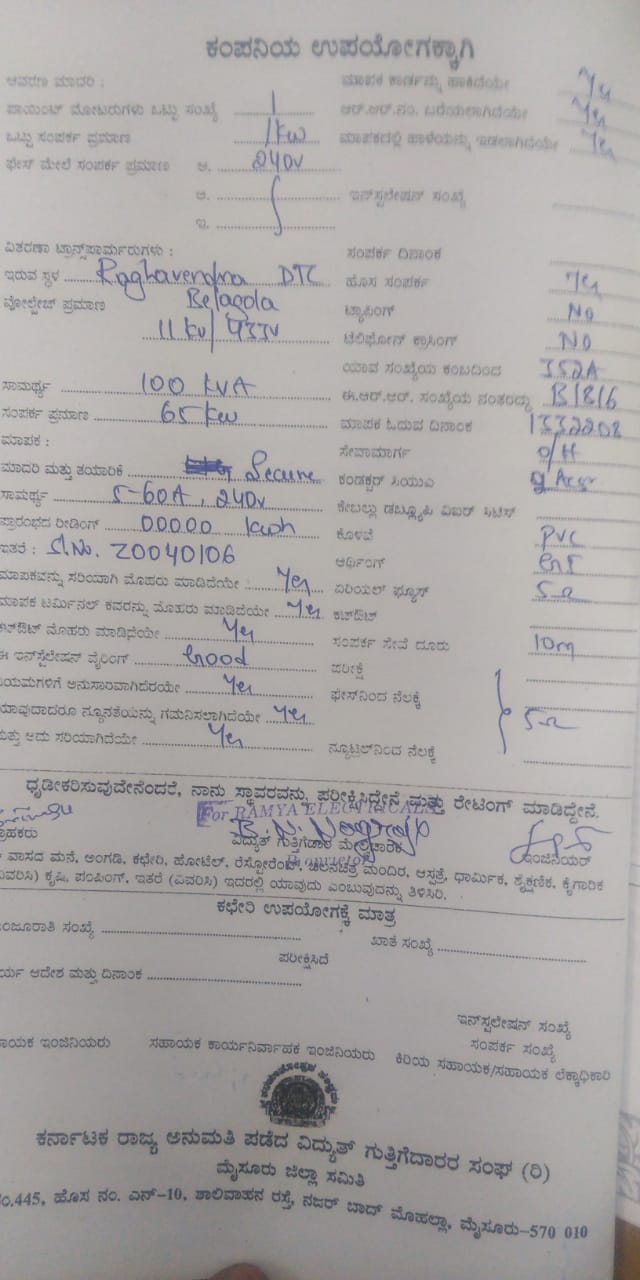 ಕಂಪನಿಯ ಉಪಯೋಗಕ್ಕಾಗಿ
ಆವರಣ ಮಾದರಿ : ಮಾಪಕ ಕಾರ್ಡನ್ನು ಹಾಕಿದೆಯೇ Yes
ಪಾಯಿಂಟ್ ಮೋಟರುಗಳು ಒಟ್ಟು ಸಂಖ್ಯೆ 1 ಆರ್.ಆರ್.ನಂ. ಬರೆಯಲಾಗಿದೆಯೇ Yes
ಒಟ್ಟು ಸಂಪರ್ಕ ಪ್ರಮಾಣ 1kw ಮಾಪಕದಲ್ಲಿ ಹಾಳೆಯನ್ನು ಇಡಲಾಗಿದೆಯೇ Yes
ಫೇಸ್ ಮೇಲೆ ಸಂಪರ್ಕ ಪ್ರಮಾಣ ಅ. 240v
ಆ. ಇನ್‌ಸ್ಟಲೇಷನ್ ಸಂಖ್ಯೆ
ಇ.
ವಿತರಣಾ ಟ್ರಾನ್ಸ್‌ಫಾರ್ಮರುಗಳು : ಸಂಪರ್ಕ ದಿನಾಂಕ
ಇರುವ ಸ್ಥಳ Raghavendra DTC ಹೊಸ ಸಂಪರ್ಕ Yes
ವೋಲ್ಟೇಜ್ ಪ್ರಮಾಣ Belagola ಟ್ಯಾಪಿಂಗ್ No
11kv/433v ಟೆಲಿಫೋನ್ ಕ್ರಾಸಿಂಗ್ No
ಯಾವ ಸಂಖ್ಯೆಯ ಕಂಬದಿಂದ
ಸಾಮರ್ಥ್ಯ 100 KVA ಈ.ಆರ್.ಆರ್. ಸಂಖ್ಯೆಯ ನಂತರದ್ದು
ಸಂಪರ್ಕ ಪ್ರಮಾಣ 65 kw ಮಾಪಕ ಓದುವ ದಿನಾಂಕ
ಮಾಪಕ : ಸೇವಾಮಾರ್ಗ O/H
ಮಾದರಿ ಮತ್ತು ತಯಾರಿಕೆ Secure ಕಂಡಕ್ಟರ್ ಸಿಯುಎ
ಸಾಮರ್ಥ್ಯ 5-60A, 240v
ಪ್ರಾರಂಭದ ರೀಡಿಂಗ್ 00000 kwh ಕೊಳವೆ PVC
ಇತರೆ : Sl.No. 20040106 ಆರ್ಥಿಂಗ್
ಮಾಪಕವನ್ನು ಸರಿಯಾಗಿ ಮೊಹರು ಮಾಡಿದೆಯೇ Yes ಏರಿಯಲ್ ಫ್ಯೂಸ್
ಮಾಪಕ ಟರ್ಮಿನಲ್ ಕವರನ್ನು ಮೊಹರು ಮಾಡಿದೆಯೇ Yes ಕಟ್‌ಔಟ್
ಕಟ್‌ಔಟ್ ಮೊಹರು ಮಾಡಿದೆಯೇ Yes ಸಂಪರ್ಕ ಸೇವೆ ದೂರು 10m
ಈ ಇನ್‌ಸ್ಟಲೇಷನ್ ವೈರಿಂಗ್ Good ಪರೀಕ್ಷೆ
ನಿಯಮಗಳಿಗೆ ಅನುಸಾರವಾಗಿದೆಯೇ Yes ಫೇಸ್‌ನಿಂದ ನೆಲಕ್ಕೆ
ಯಾವುದಾದರೂ ನ್ಯೂನತೆಯನ್ನು ಗಮನಿಸಲಾಗಿದೆಯೇ Yes 5Ω
ಮತ್ತು ಅದು ಸರಿಯಾಗಿದೆಯೇ Yes ನ್ಯೂಟ್ರಲ್‌ನಿಂದ ನೆಲಕ್ಕೆ
ಧೃಡೀಕರಿಸುವುದೇನೆಂದರೆ, ನಾನು ಸ್ಥಾವರವನ್ನು ಪರೀಕ್ಷಿಸಿದ್ದೇನೆ ಮತ್ತು ರೇಟಿಂಗ್ ಮಾಡಿದ್ದೇನೆ.
For RAMYA ELECTRICALS
ಗ್ರಾಹಕರು ವಿದ್ಯುತ್ ಗುತ್ತಿಗೆದಾರ ಮೇಲ್ವಿಚಾರಕ ಇಂಜಿನಿಯರ್
Proprietor
ವಾಸದ ಮನೆ, ಅಂಗಡಿ, ಕಛೇರಿ, ಹೋಟೆಲ್, ರೆಸ್ಟೋರೆಂಟ್, ಚಲನಚಿತ್ರ ಮಂದಿರ, ಆಸ್ಪತ್ರೆ, ಧಾರ್ಮಿಕ, ಶೈಕ್ಷಣಿಕ, ಕೈಗಾರಿಕ
(ವಿವರಿಸಿ) ಕೃಷಿ, ಪಂಪಿಂಗ್, ಇತರೆ (ವಿವರಿಸಿ) ಇದರಲ್ಲಿ ಯಾವುದು ಎಂಬುವುದನ್ನು ತಿಳಿಸಿರಿ.
ಕಛೇರಿ ಉಪಯೋಗಕ್ಕೆ ಮಾತ್ರ
ಮಂಜೂರಾತಿ ಸಂಖ್ಯೆ ಖಾತೆ ಸಂಖ್ಯೆ
ಪರೀಕ್ಷಿಸಿದೆ
ಕಾರ್ಯ ಆದೇಶ ಮತ್ತು ದಿನಾಂಕ
ಇನ್‌ಸ್ಟಲೇಷನ್ ಸಂಖ್ಯೆ
ಸಂಪರ್ಕ ಸಂಖ್ಯೆ
ಸಹಾಯಕ ಇಂಜಿನಿಯರು ಸಹಾಯಕ ಕಾರ್ಯನಿರ್ವಾಹಕ ಇಂಜಿನಿಯರು ಕಿರಿಯ ಸಹಾಯಕ/ಸಹಾಯಕ ಲೆಕ್ಕಾಧಿಕಾರಿ
ಕರ್ನಾಟಕ ರಾಜ್ಯ ಅನುಮತಿ ಪಡೆದ ವಿದ್ಯುತ್ ಗುತ್ತಿಗೆದಾರರ ಸಂಘ (ರಿ)
ಮೈಸೂರು ಜಿಲ್ಲಾ ಸಮಿತಿ
ನಂ.445, ಹೊಸ ನಂ. ಎನ್-10, ಶಾಲಿವಾಹನ ರಸ್ತೆ, ನಜರ್ ಬಾದ್ ಮೊಹಲ್ಲಾ, ಮೈಸೂರು-570 010